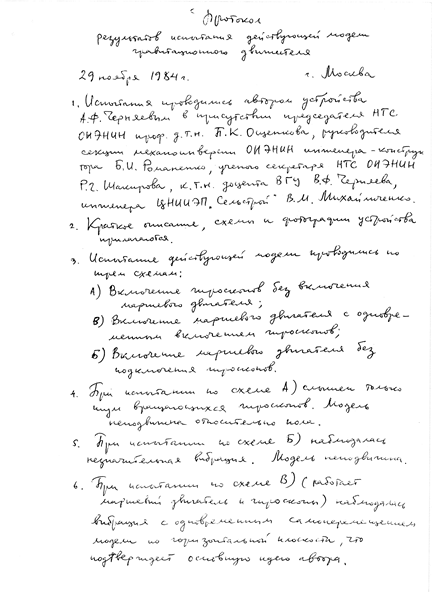 Протокол
результатов испытания действующей модели
гравитационного движителя
29 ноября 1984 г. г. Москва
1. Испытания проводились автором устройства
А.Ф. Черняевым в присутствии председателя НТС
ОИЭНИН проф. д.т.н. П.К. Ощепкова, руководителя
секции механоинверсии ОИЭНИН инженера-конструк
тора Б.И. Романенко, ученого секретаря НТС ОИЭНИН
Р.Г. Шакирова, к.т.н. доцента ВГУ В.Ф. Черняева,
инженера ЦНИИЭП, Сельстрой В.М. Михайличенко.
2. Краткое описание, схемы и фотографии устройства
прилагаются.
3. Испытание действующей модели проводились по
трем схемам:
А) Включение гироскопов без включения
маршевого двигателя;
В) Включение маршевого двигателя с одновре-
менным включением гироскопов;
Б) Включение маршевого двигателя без
подключения гироскопов.
4. При испытании по схеме А) слышен только
шум вращающихся гироскопов. Модель
неподвижна относительно пола.
5. При испытании по схеме Б) наблюдалась
незначительная вибрация. Модель неподвижна.
6. При испытании по схеме В) (работает
маршевый двигатель и гироскопы) наблюдалась
вибрация с одновременным самоперемещением
модели по горизонтальной плоскости, что
подтверждает основную идею автора.